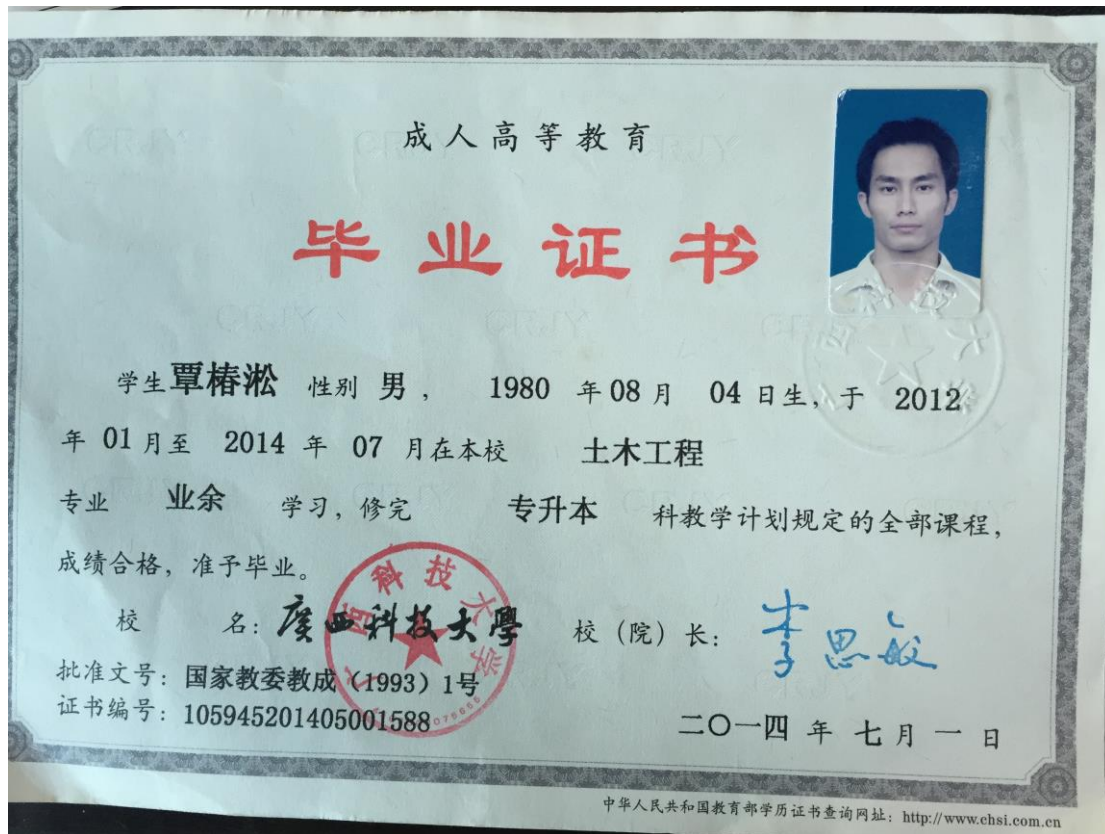 成人高等教育
毕业证书
学生覃椿淞 性别 男， 1980 年 08 月 04 日生，于 2012
年 01 月至 2014 年 07 月在本校 土木工程
专业 业余 学习，修完 专升本 科教学计划规定的全部课程，
成绩合格，准予毕业。
校 名：广西科技大學 校（院）长：李思敏
广西科技大学
批准文号：国家教委教成（1993）1号
证书编号：105945201405001588
二〇一四 年 七 月 一 日
中华人民共和国教育部学历证书查询网址：http://www.chsi.com.cn